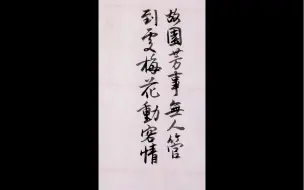 故園芳事無人管
到處梅花動客情